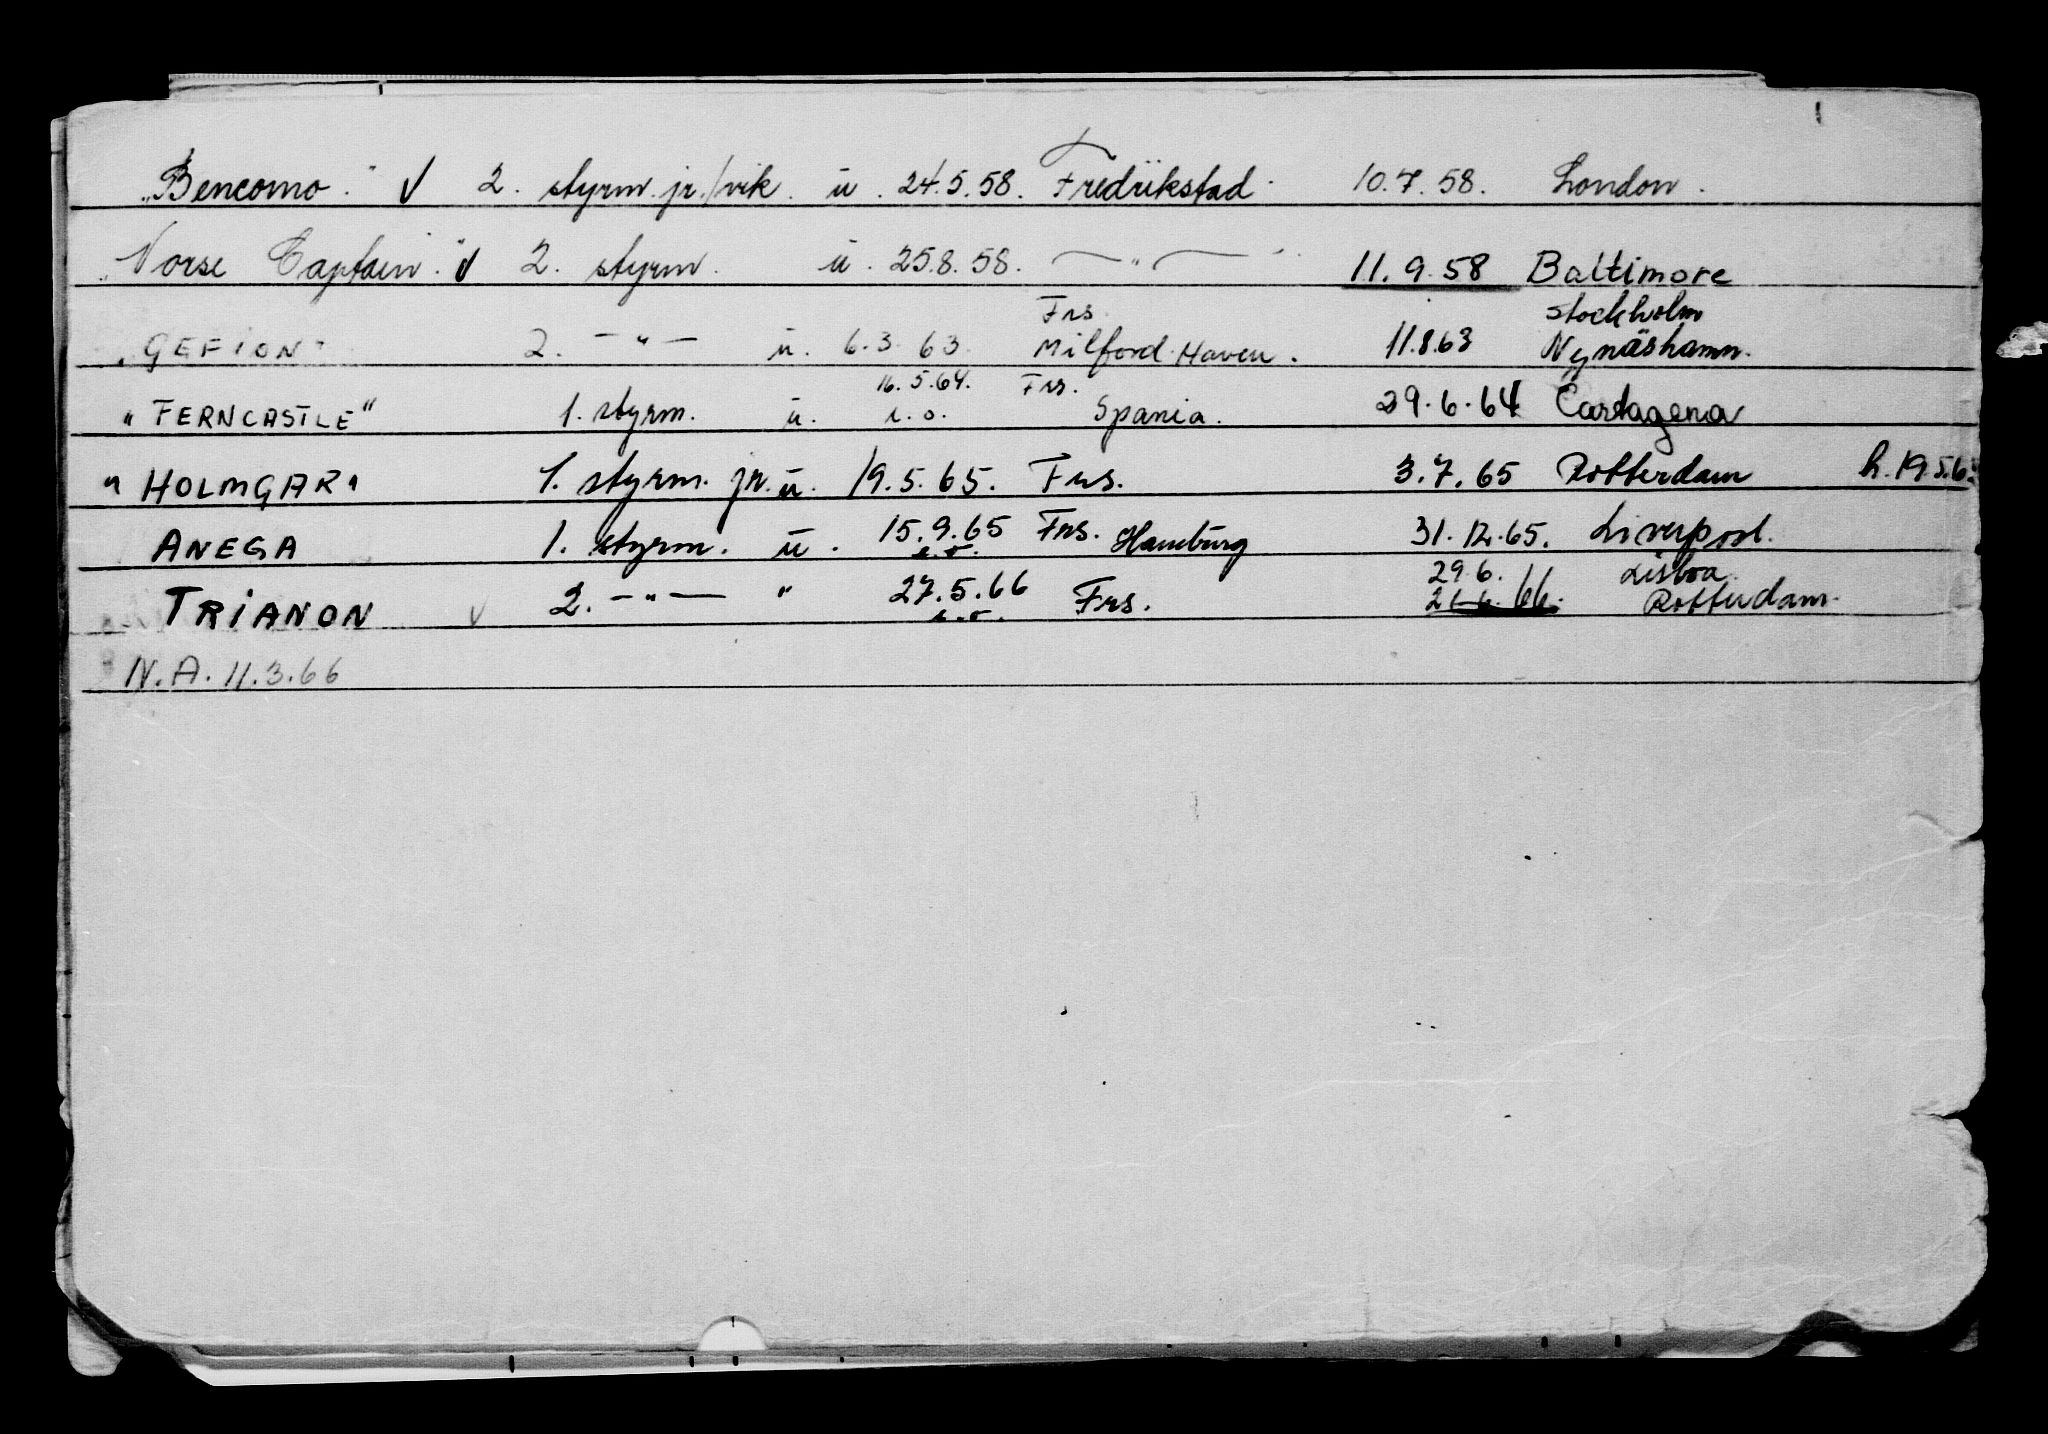 „Bencomo." V 2. styrm. jr./vik. u. 24.5.58. Fredrikstad. 10.7.58. London.
„Norse Captain." V 2. styrm. u. 25.8.58. — " — 11.9.58 Baltimore
Frs. Stockholm
„GEFION" 2. — " — u. 6.3.63. Milford Haven. 11.8.63 Nynäshamn.
16.5.64. Frs.
"FERNCASTLE" 1. styrm. u. i.o. Spania. 29.6.64 Cartagena
"HOLMGAR" 1. styrm. jr. u. 19.5.65. Frs. 3.7.65 Rotterdam h.19.5.6
ANEGA 1. styrm. u. 15.9.65 i.o. Frs. Hamburg 31.12.65. Liverpool.
29.6. Lisboa
TRIANON V 2. — " — " 27.5.66 i.o. Frs. 66. Rotterdam.
N.A. 11.3.66